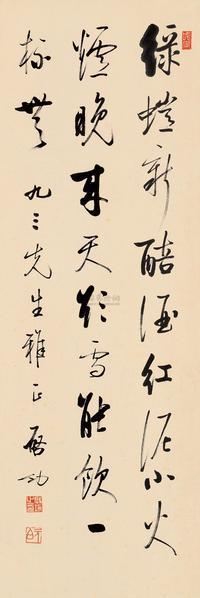 綠螘新醅酒紅泥小火
爐晚來天欲雪能飲一
杯無 九三先生雅正 啓功